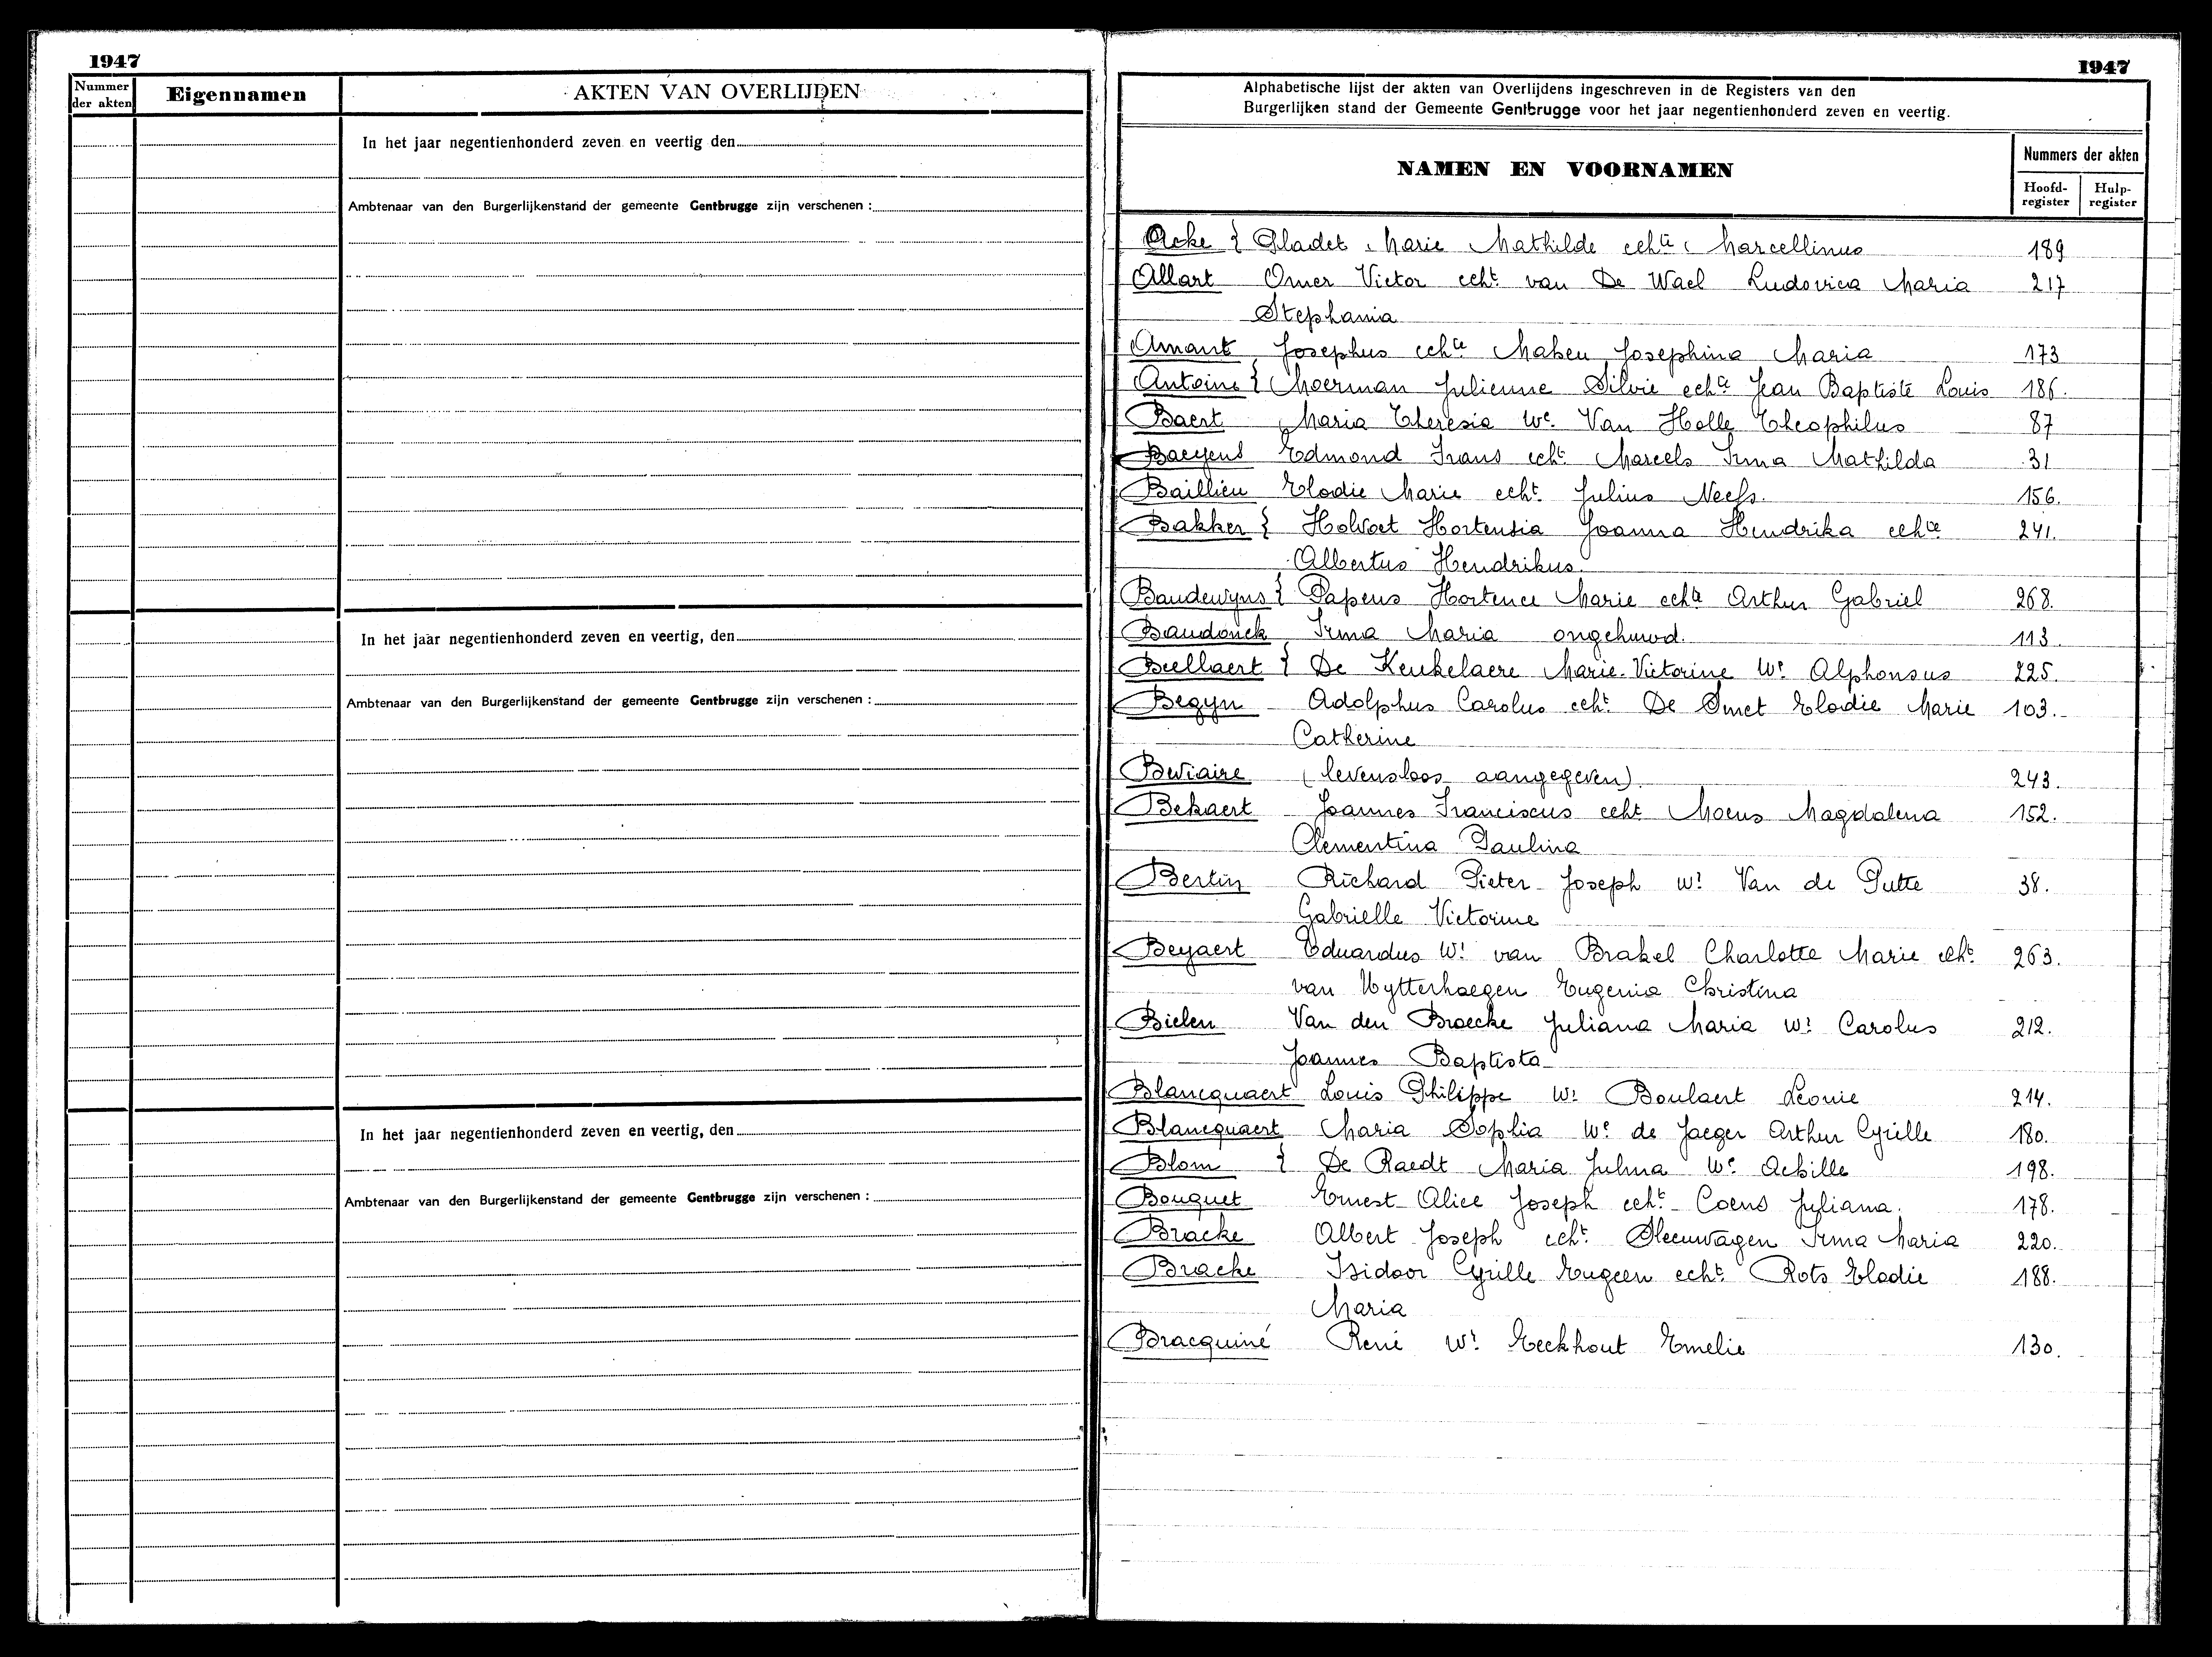 1947
Nummer der akten
Eigennamen
AKTEN VAN OVERLIJDEN
In het jaar negentienhonderd zeven en veertig den
Ambtenaar van den Burgerlijkenstand der gemeente Gentbrugge zijn verschenen :
In het jaar negentienhonderd zeven en veertig, den
Ambtenaar van den Burgerlijkenstand der gemeente Gentbrugge zijn verschenen :
In het jaar negentienhonderd zeven en veertig, den
Ambtenaar van den Burgerlijkenstand der gemeente Gentbrugge zijn verschenen :
1947
Alphabetische lijst der akten van Overlijdens ingeschreven in de Registers van den
Burgerlijken stand der Gemeente Gentbrugge voor het jaar negentienhonderd zeven en veertig.
NAMEN EN VOORNAMEN
Nummers der akten
Hoofd-register
Hulp-register
Acke } Gladet Marie Mathilde echte Marcellinus 189
Allart Omer Victor echt. van De Wael Ludovica Maria 217
Stephania
Amant Josephus echte Maheu Josephina Maria 173
Antoine } Moerman Julienne Silvie echte Jean Baptiste Louis 186.
Baert Maria Theresia We. Van Holle Theophilus 87
Baeyens Edmond Frans echt. Marcels Irma Mathilda 31
Baillieu Elodie Marie echt. Julius Neefs. 156.
Bakker } Holvoet Hortensia Joanna Hendrika echte 241.
Albertus Hendrikus.
Baudewyns } Papens Hortence Marie echte Arthur Gabriel 268.
Baudonck Irma Maria ongehuwd. 113.
Beellaert } De Keukelaere Marie-Victorine We Alphonsus 225.
Begyn Adolphus Carolus echt. De Smet Elodie Marie 103.
Catherine
Beviaire (levensloos aangegeven) 243.
Bekaert Joannes Franciscus echt Moens Magdalena 152.
Clementina Paulina
Bertin Richard Pieter Joseph wr Van de Putte 38.
Gabrielle Victorine
Beyaert Eduardus Wr van Brakel Charlotte Marie echt. 263.
van Uytterhaegen Eugenia Christina
Bielen Van den Broecke Juliana Maria We Carolus 212.
Joannes Baptista
Blancquaert Louis Philippe Wr Boulaert Leonie 214.
Blancquaert Maria Sophia We de Jaeger Arthur Cyrille 180.
Blom } De Raedt Maria Julma We Achille 198.
Bouquet Ernest Alice Joseph echt. Coens Juliana. 178.
Bracke Albert Joseph echt. Sleeuwagen Irma Maria 220.
Bracke Isidoor Cyrille Eugeen echt. Rots Elodie 188.
Maria
Bracquiné René Wr Eeckhout Emelie 130.